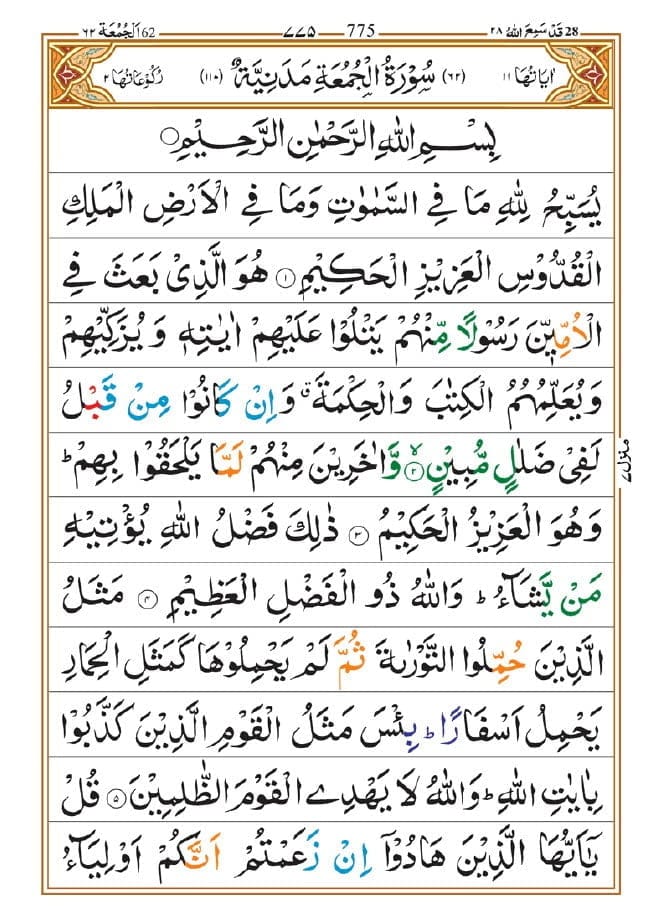 62 اَلْجُمُعَة ٦٢ 775 ٧٧٥ 28 قَدْ سَمِعَ اللهُ ٢٨
اٰيَاتُهَا ١١ (٦٢) سُوْرَةُ الْجُمُعَةِ مَدَنِيَّةٌ (١١٠) رُكُوْعَاتُهَا ٢
بِسْمِ اللهِ الرَّحْمٰنِ الرَّحِيْمِ
يُسَبِّحُ لِلّٰهِ مَا فِي السَّمٰوٰتِ وَمَا فِي الْاَرْضِ الْمَلِكِ
الْقُدُّوْسِ الْعَزِيْزِ الْحَكِيْمِ ١ هُوَ الَّذِيْ بَعَثَ فِي
الْاُمِّيّٖنَ رَسُوْلًا مِّنْهُمْ يَتْلُوْا عَلَيْهِمْ اٰيٰتِهٖ وَيُزَكِّيْهِمْ
وَيُعَلِّمُهُمُ الْكِتٰبَ وَالْحِكْمَةَ ۗ وَاِنْ كَانُوْا مِنْ قَبْلُ
لَفِيْ ضَلٰلٍ مُّبِيْنٍ ٢ وَّاٰخَرِيْنَ مِنْهُمْ لَمَّا يَلْحَقُوْا بِهِمْ ؕ
وَهُوَ الْعَزِيْزُ الْحَكِيْمُ ٣ ذٰلِكَ فَضْلُ اللهِ يُؤْتِيْهِ
مَنْ يَّشَآءُ ؕ وَاللهُ ذُو الْفَضْلِ الْعَظِيْمِ ٤ مَثَلُ
الَّذِيْنَ حُمِّلُوا التَّوْرٰىةَ ثُمَّ لَمْ يَحْمِلُوْهَا كَمَثَلِ الْحِمَارِ
يَحْمِلُ اَسْفَارًا ؕ بِئْسَ مَثَلُ الْقَوْمِ الَّذِيْنَ كَذَّبُوْا
بِاٰيٰتِ اللهِ ؕ وَاللهُ لَا يَهْدِي الْقَوْمَ الظّٰلِمِيْنَ ٥ قُلْ
يٰٓاَيُّهَا الَّذِيْنَ هَادُوْٓا اِنْ زَعَمْتُمْ اَنَّكُمْ اَوْلِيَآءُ
منزل ٧